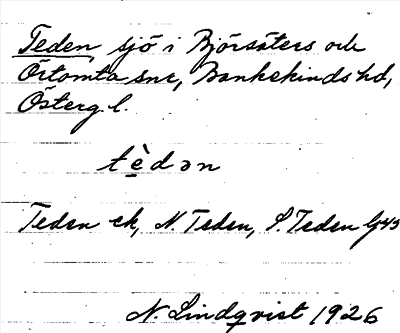 Teden, sjö i Björsäters och
Örtomta snr, Bankekinds hd,
Österg. l.
tèdən
Teden ek, N. Teden, S. Teden
N. Lindqvist 1926